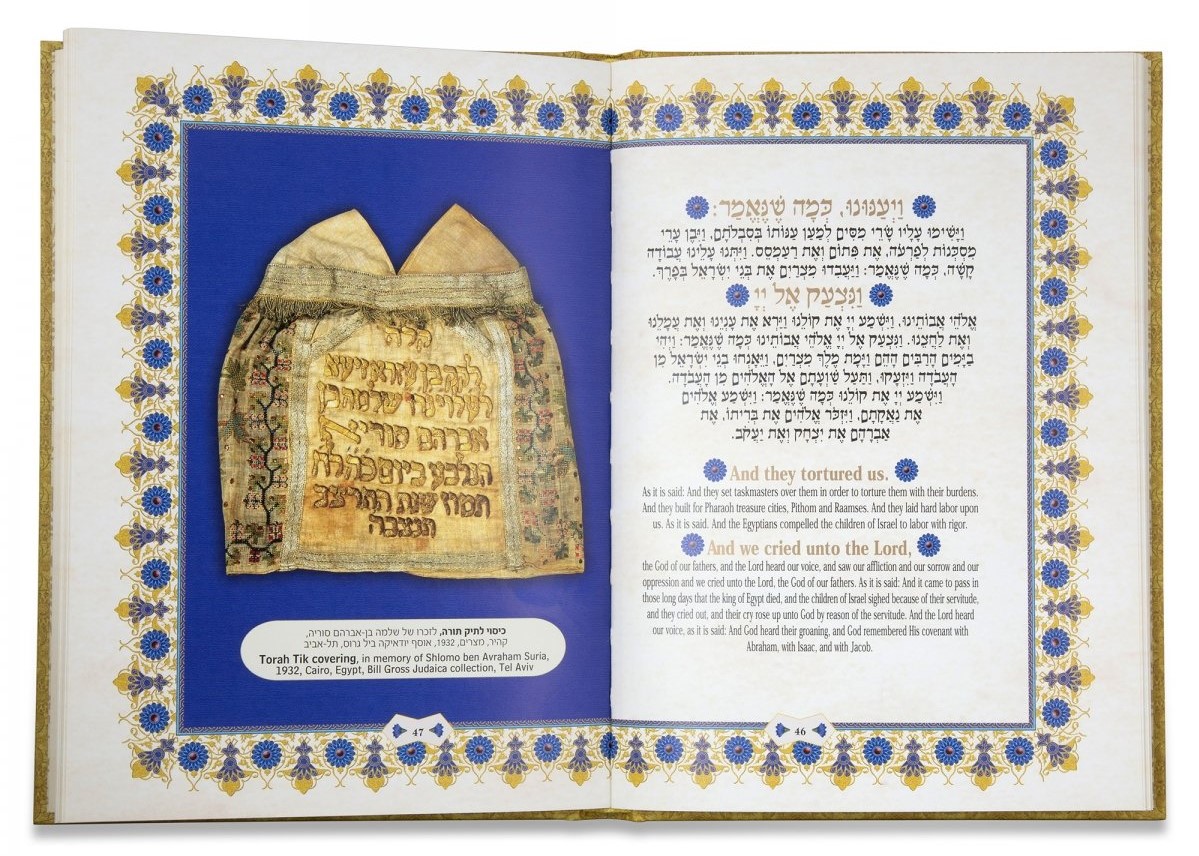 וַיְעַנּוּנוּ, כְּמָה שֶׁנֶּאֱמַר:
וַיָּשִׂימוּ עָלָיו שָׂרֵי מִסִּים לְמַעַן עַנּוֹתוֹ בְּסִבְלֹתָם, וַיִּבֶן עָרֵי
מִסְכְּנוֹת לְפַרְעֹה, אֶת פִּתוֹם וְאֶת רַעַמְסֵס. וַיִּתְּנוּ עָלֵינוּ עֲבוֹדָה
קָשָׁה, כְּמָה שֶׁנֶּאֱמַר: וַיַּעֲבִדוּ מִצְרַיִם אֶת בְּנֵי יִשְׂרָאֵל בְּפָרֶךְ.
וַנִּצְעַק אֶל יְיָ
אֱלֹהֵי אֲבוֹתֵינוּ, וַיִּשְׁמַע יְיָ אֶת קוֹלֵנוּ וַיַּרְא אֶת עָנְיֵנוּ וְאֶת עֲמָלֵנוּ
וְאֶת לַחֲצֵנוּ. וַנִּצְעַק אֶל יְיָ אֱלֹהֵי אֲבוֹתֵינוּ כְּמָה שֶׁנֶּאֱמַר: וַיְהִי
בַיָּמִים הָרַבִּים הָהֵם וַיָּמָת מֶלֶךְ מִצְרַיִם, וַיֵּאָנְחוּ בְנֵי יִשְׂרָאֵל מִן
הָעֲבֹדָה וַיִּזְעָקוּ, וַתַּעַל שַׁוְעָתָם אֶל הָאֱלֹהִים מִן הָעֲבֹדָה.
וַיִּשְׁמַע יְיָ אֶת קוֹלֵנוּ כְּמָה שֶׁנֶּאֱמַר: וַיִּשְׁמַע אֱלֹהִים
אֶת נַאֲקָתָם, וַיִּזְכֹּר אֱלֹהִים אֶת בְּרִיתוֹ, אֶת
אַבְרָהָם אֶת יִצְחָק וְאֶת יַעֲקֹב.
And they tortured us.
As it is said: And they set taskmasters over them in order to torture them with their burdens.
And they built for Pharaoh treasure cities, Pithom and Raamses. And they laid hard labor upon
us. As it is said. And the Egyptians compelled the children of Israel to labor with rigor.
And we cried unto the Lord,
the God of our fathers, and the Lord heard our voice, and saw our affliction and our sorrow and our
oppression and we cried unto the Lord, the God of our fathers. As it is said: And it came to pass in
those long days that the king of Egypt died, and the children of Israel sighed because of their servitude,
and they cried out, and their cry rose up unto God by reason of the servitude. And the Lord heard
our voice, as it is said: And God heard their groaning, and God remembered His covenant with
Abraham, with Isaac, and with Jacob.
46
בן עזרא
שלמה בן
אברהם סוריא
ביום כה
תמוז שנת התרצב
תנצבה
כיסוי לתיק תורה, לזכרו של שלמה בן-אברהם סוריה,
קהיר, מצרים, 1932, אוסף יודאיקה ביל גרוס, תל-אביב
Torah Tik covering, in memory of Shlomo ben Avraham Suria,
1932, Cairo, Egypt, Bill Gross Judaica collection, Tel Aviv
47